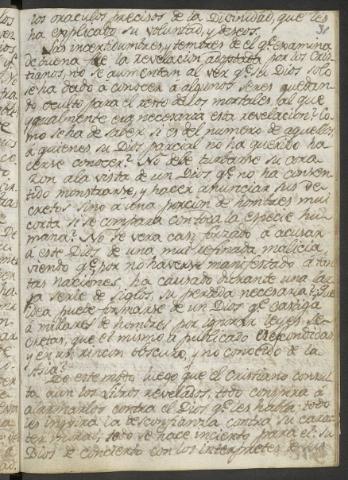 los oraculos precisos de la Divinidad, que les
ha explicado su voluntad, y deseos.
Las incertidumbres, y temores de el qe. examina
de buena fee la revelacion adoptada por los Cris
tianos, no se aumentan al ver qe. su Dios solo
se ha dado á conocer á algunos seres quedan
do oculto para el resto de los mortales, al que
igualmente era necesaria esta revelacion? Co
mo se ha de saber si es del numero de aquellos
á quienes su Dios parcial no ha querido ha
cerse conocer? No debe turbarse su cora
zon á la vista de un Dios qe. no ha consen
tido monstrarse, y hacer anunciar sus de
cretos sino á una porcion de hombres mui
corta si se compara contra la especie hu
mana? No se vera casi forzado á acusar
á este Dios de una mui refinada malicia
viendo qe. por no haverse manifestado á tan
tas naciones, ha causado durante una lar
ga serie de siglos, su perdida necesaria? Que
idea puede formarse de un Dios qe. castiga
á millares de hombres por ignorar leyes se
cretas, que el mismo á publicado escondidas
y en un rincon obscuro, y no conocido de la
Asia?
De este modo luego que el Cristiano consul
ta aun los libros revelados, todo conspira á
alarmarlos contra el Dios qe. les habla: todo
les inspira la desconfianza contra su carac
ter moral; todo se hace incierto para el: su
Dios de concierto con los interpretes de